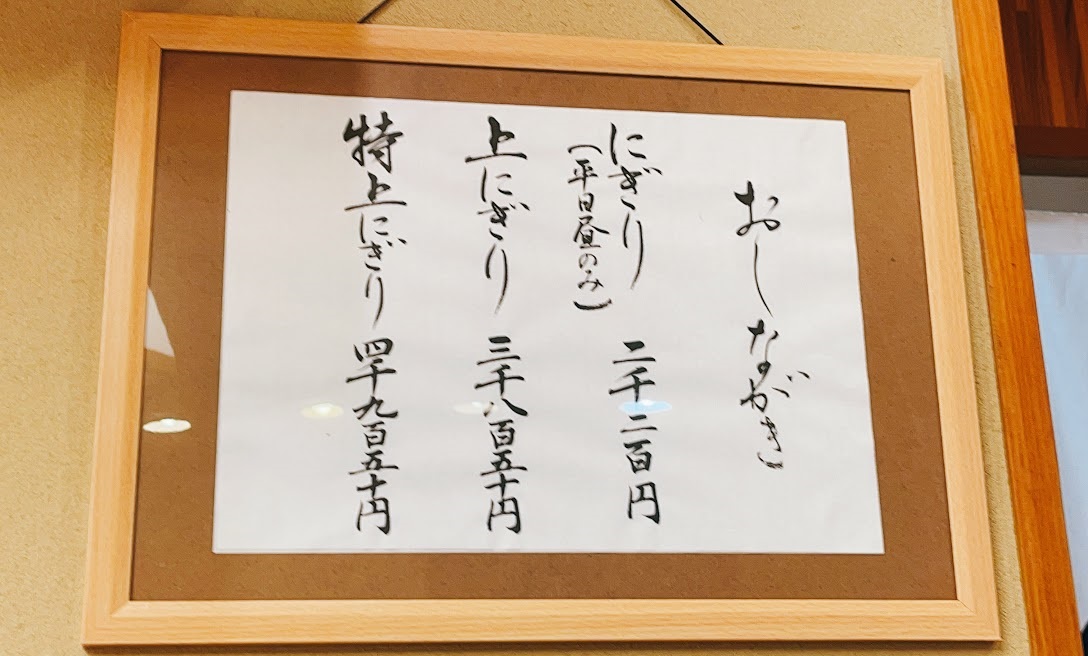 おしながき
にぎり 二千二百円
（平日昼のみ）
上にぎり 三千八百五十円
特上にぎり 四千九百五十円